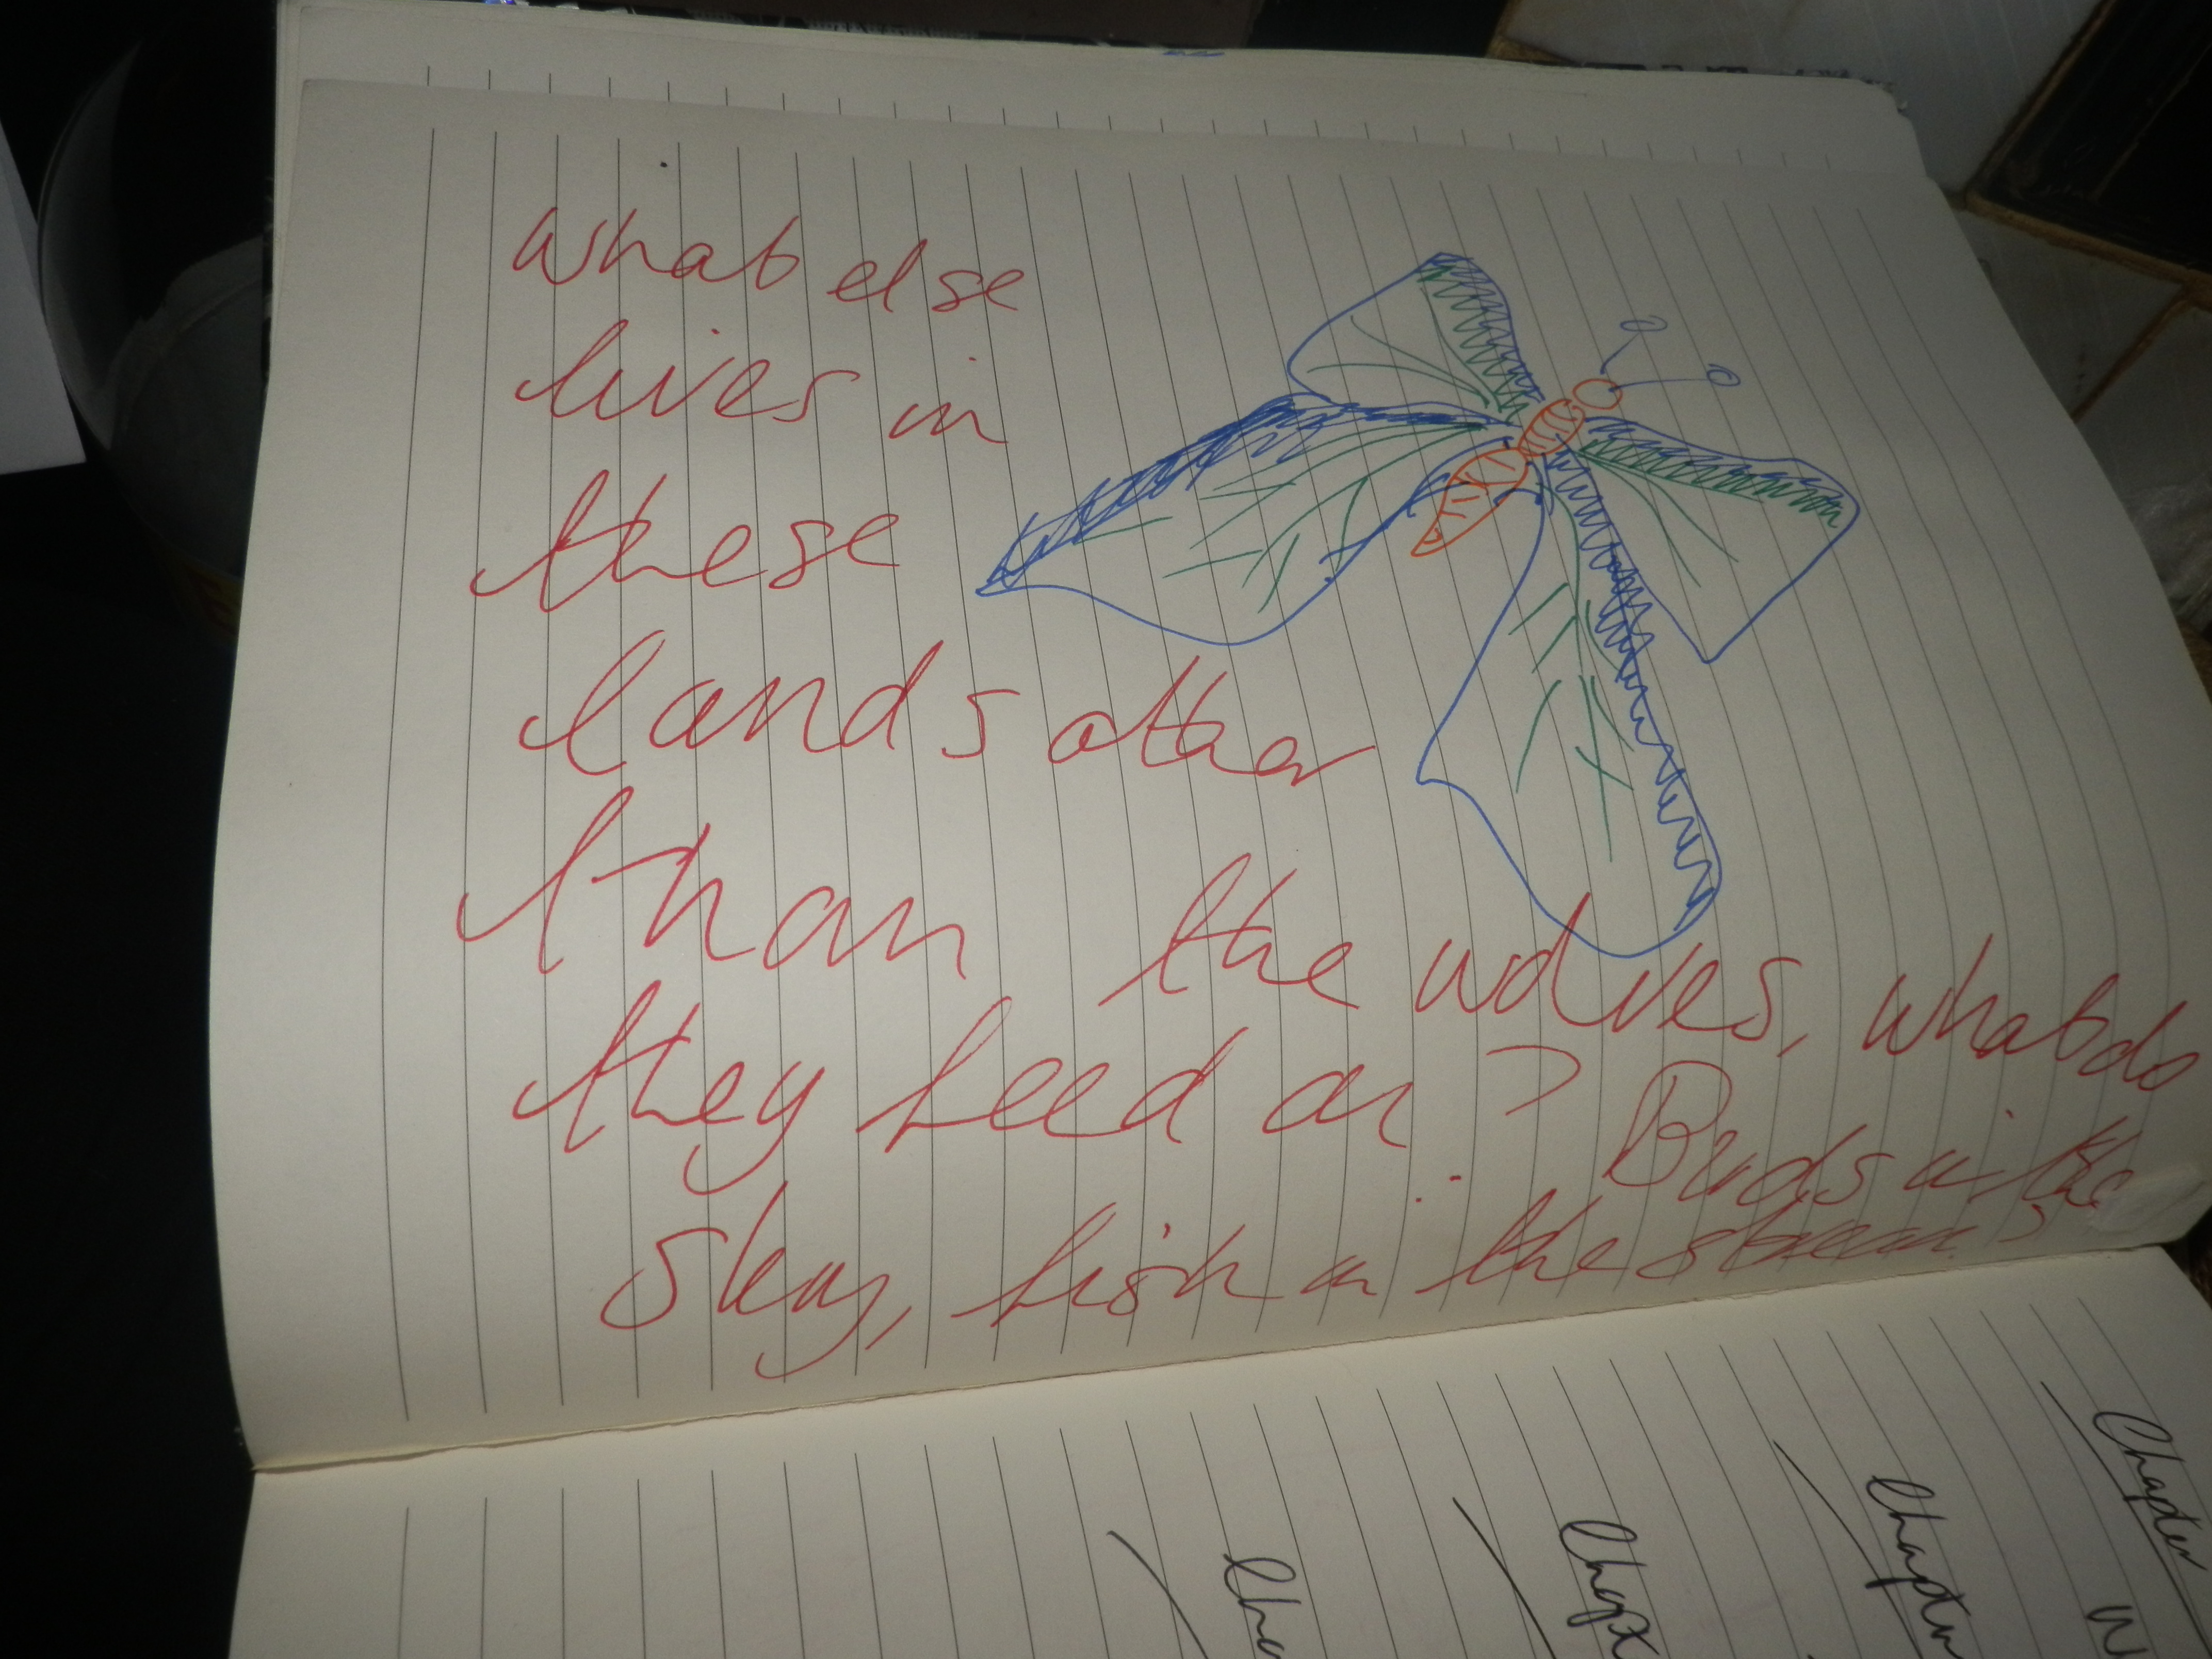 what else
lives in
these
lands other
than the wolves, what do
they feed on? Birds in the
sky, fish in the streams
Chapter
Chapter